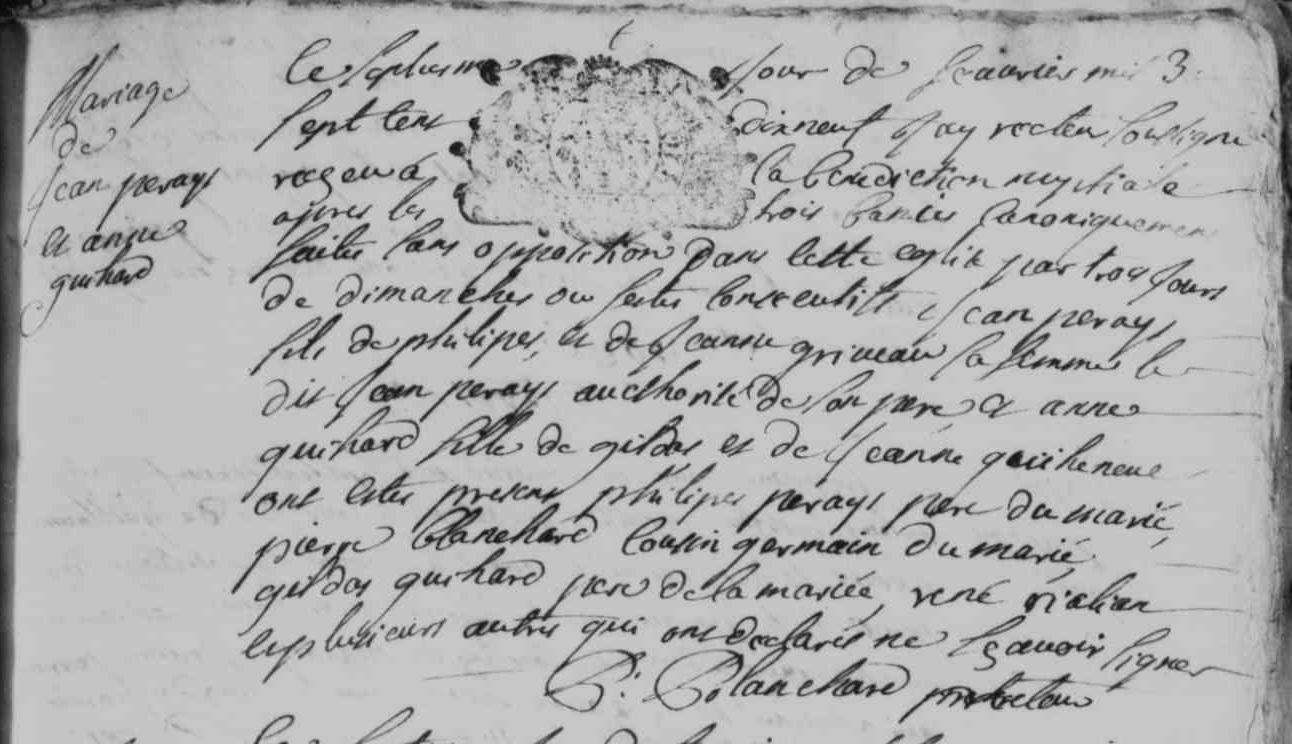 Mariage
de
Jean perays
et anne
guihard
le septiesme jour de feauvrier mil
sept cens dixneuf j'ay recteur soussigne
la benediction nuptiale
apres les trois bannies canoniquement
faites sans opposition dans cette eglise par trois jours
de dimanches ou festes consecutifs Jean perays
fils de philipes, et de Jeanne griveau sa femme le
dit Jean perays aucthorisé de son pere et anne
guihard fille de gildas et de Jeanne guiheneuc
ont estes presens philipes perays pere du marié,
pierre blanchard cousin germain du marié
gildas guihard pere de la mariée, rené
et plusieurs autres qui ont declarés ne sçavoir signer
P: Blanchard recteur